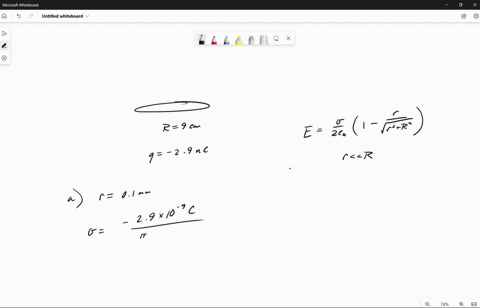 Microsoft Whiteboard
Untitled whiteboard
R = 9 cm
q = -2.9 nC
E = σ/2ε₀ (1 - r/√(r²+R²))
r << R
a) r = 0.1 mm
σ = - 2.9 × 10⁻⁹ C / π
74%